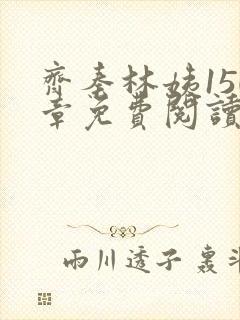 齊奎林姊15
章免費閱讀
雨川透子轰斗